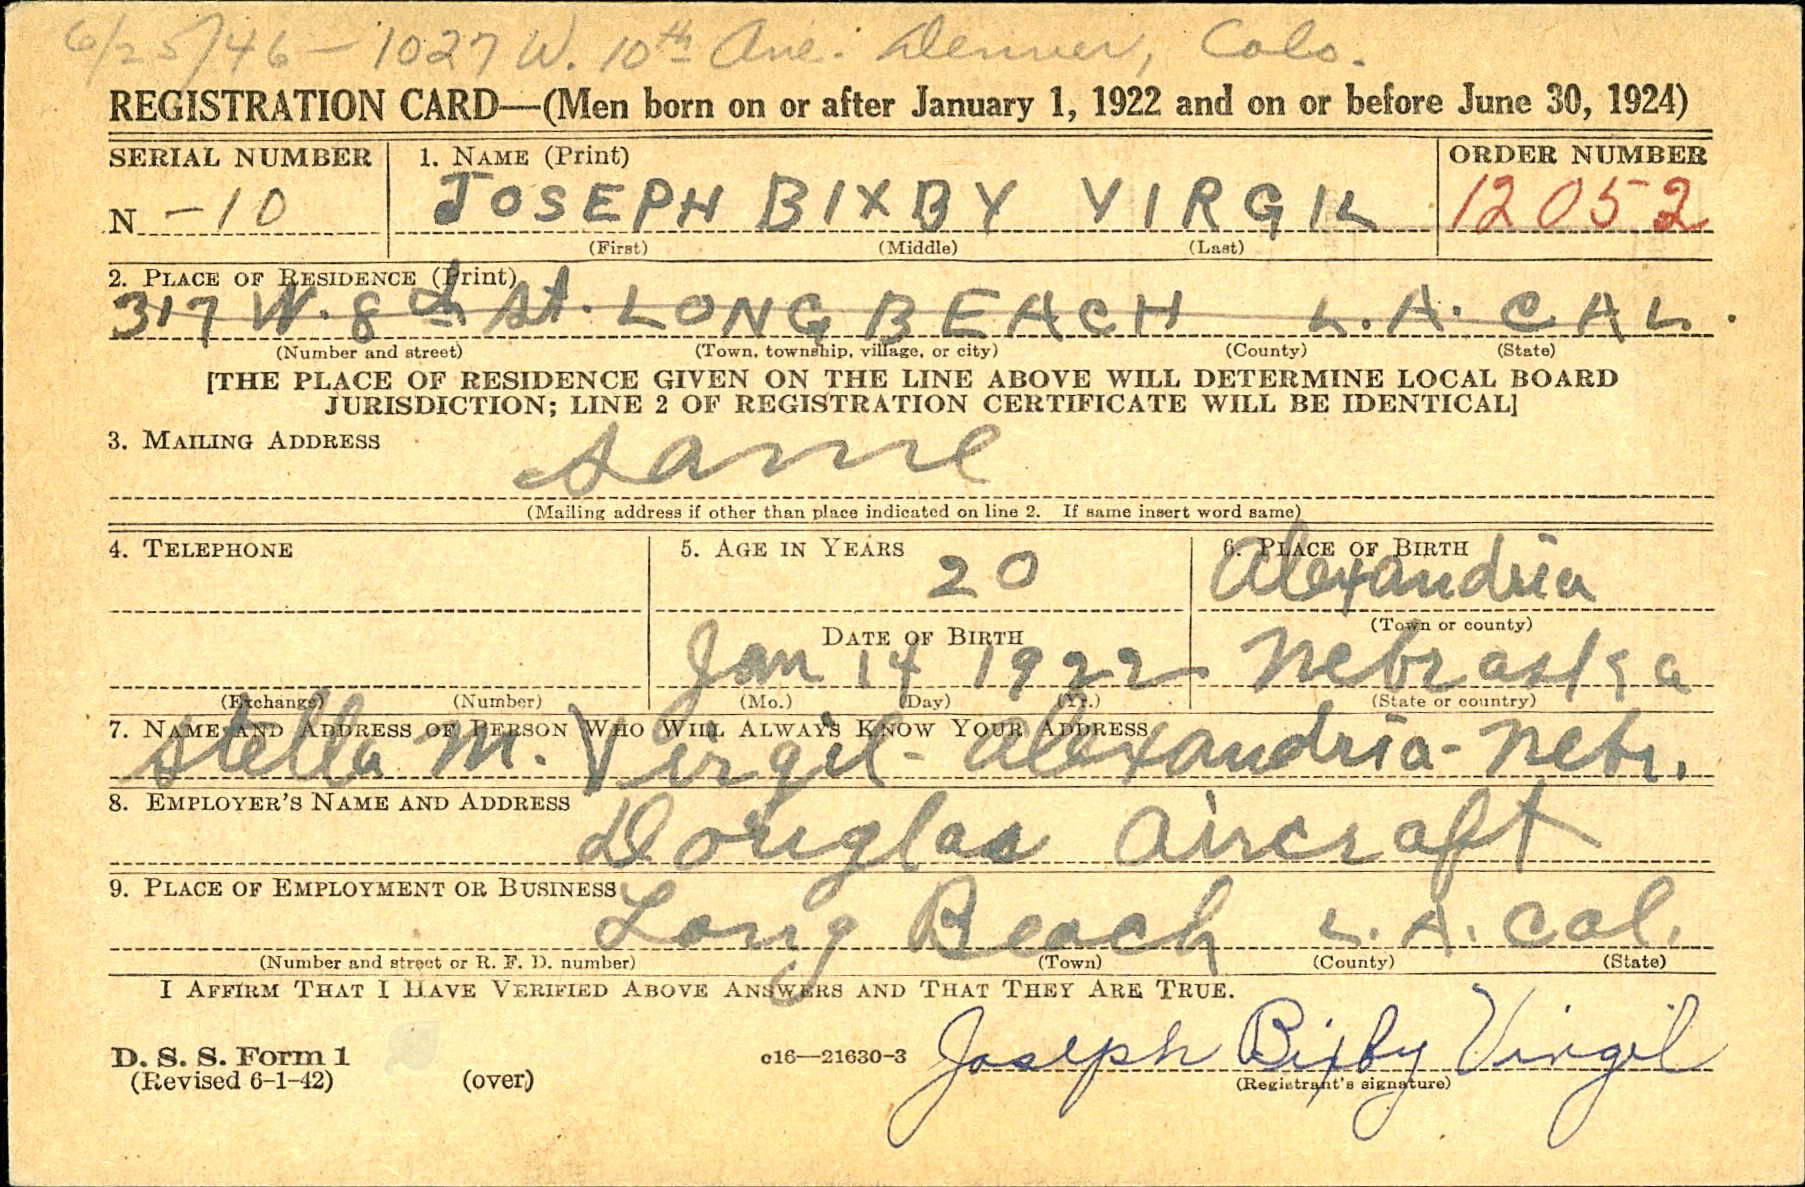 6/25/46 - 1027 W. 10th Ave. Denver, Colo.
REGISTRATION CARD—(Men born on or after January 1, 1922 and on or before June 30, 1924)
SERIAL NUMBER 1. NAME (Print) ORDER NUMBER
N -10 JOSEPH BIXBY VIRGIL 12052
(First) (Middle) (Last)
2. PLACE OF RESIDENCE (Print)
317 W. 8th St. LONG BEACH L.A. CAL.
(Number and street) (Town, township, village, or city) (County) (State)
[THE PLACE OF RESIDENCE GIVEN ON THE LINE ABOVE WILL DETERMINE LOCAL BOARD
JURISDICTION; LINE 2 OF REGISTRATION CERTIFICATE WILL BE IDENTICAL]
3. MAILING ADDRESS
same
(Mailing address if other than place indicated on line 2. If same insert word same)
4. TELEPHONE 5. AGE IN YEARS 6. PLACE OF BIRTH
20 Alexandria
DATE OF BIRTH (Town or county)
Jan 14 1922 Nebraska
(Exchange) (Number) (Mo.) (Day) (Yr.) (State or country)
7. NAME AND ADDRESS OF PERSON WHO WILL ALWAYS KNOW YOUR ADDRESS
Stella M. Virgil - Alexandria - Nebr.
8. EMPLOYER'S NAME AND ADDRESS
Douglas Aircraft
9. PLACE OF EMPLOYMENT OR BUSINESS
Long Beach L.A. Cal.
(Number and street or R. F. D. number) (Town) (County) (State)
I AFFIRM THAT I HAVE VERIFIED ABOVE ANSWERS AND THAT THEY ARE TRUE.
D. S. S. Form 1 c16—21630-3 Joseph Bixby Virgil
(Revised 6-1-42) (over) (Registrant's signature)